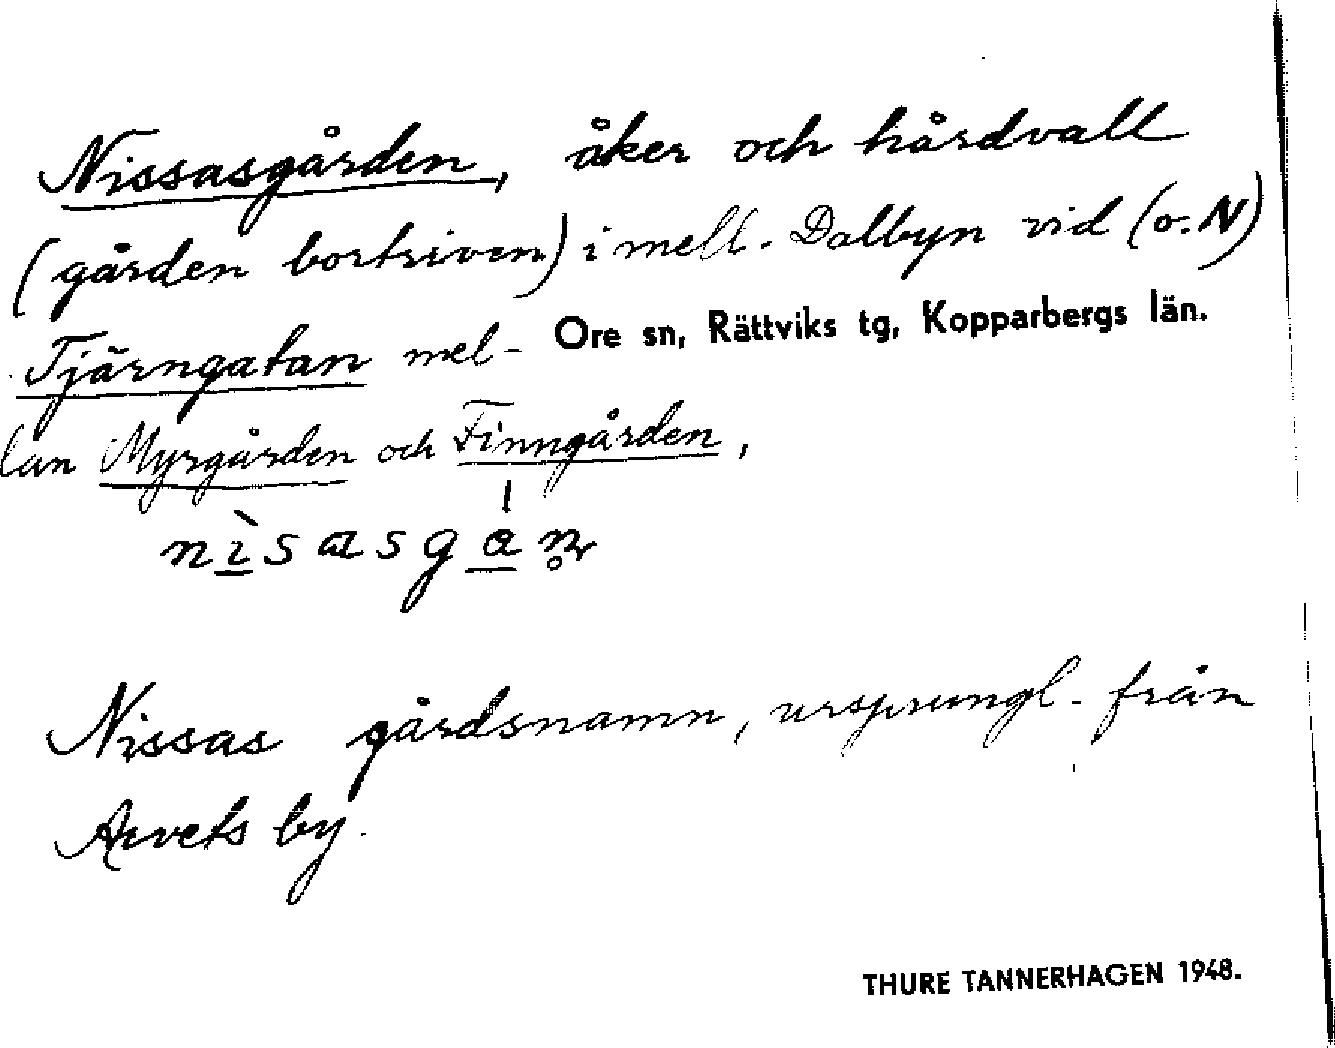 Nissasgården, åker och hårdvall
(gården bortriven) i mell. Dalbyn vid (o. N)
Tjärngatan mel-
Ore sn, Rättviks tg, Kopparbergs län.
lan Myrgården och Finngården,
Nissas gårdsnamn, ursprungl. från
Arvets by.
THURE TANNERHAGEN 1948.